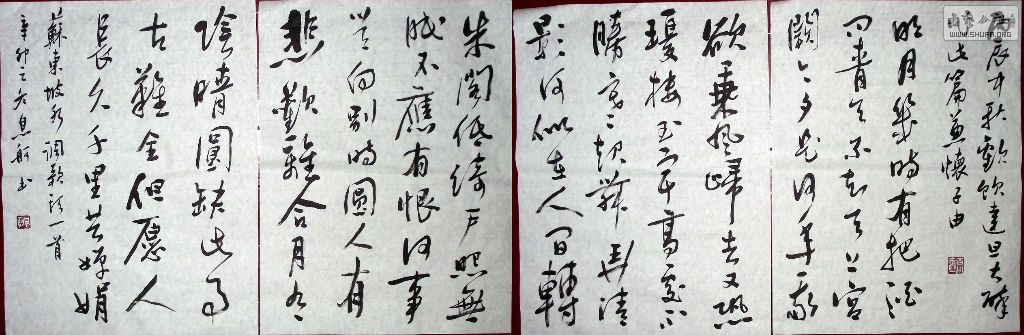 丙辰中秋歡飲達旦大醉
此篇兼懷子由
明月幾時有把酒
问青天不知天上宫
闕今夕是何年我
欲乘風歸去又恐
瓊樓玉宇高處不
勝寒起舞弄清
影何似在人间轉
朱閣低綺户照無
眠不應有恨何事
长向别時圓人有
悲歡離合月有
陰晴圓缺此事
古難全但愿人
長久千里共嬋娟
蘇東坡水调歌頭一首
辛卯之冬息舸书
WWW.SHUFA.ORG